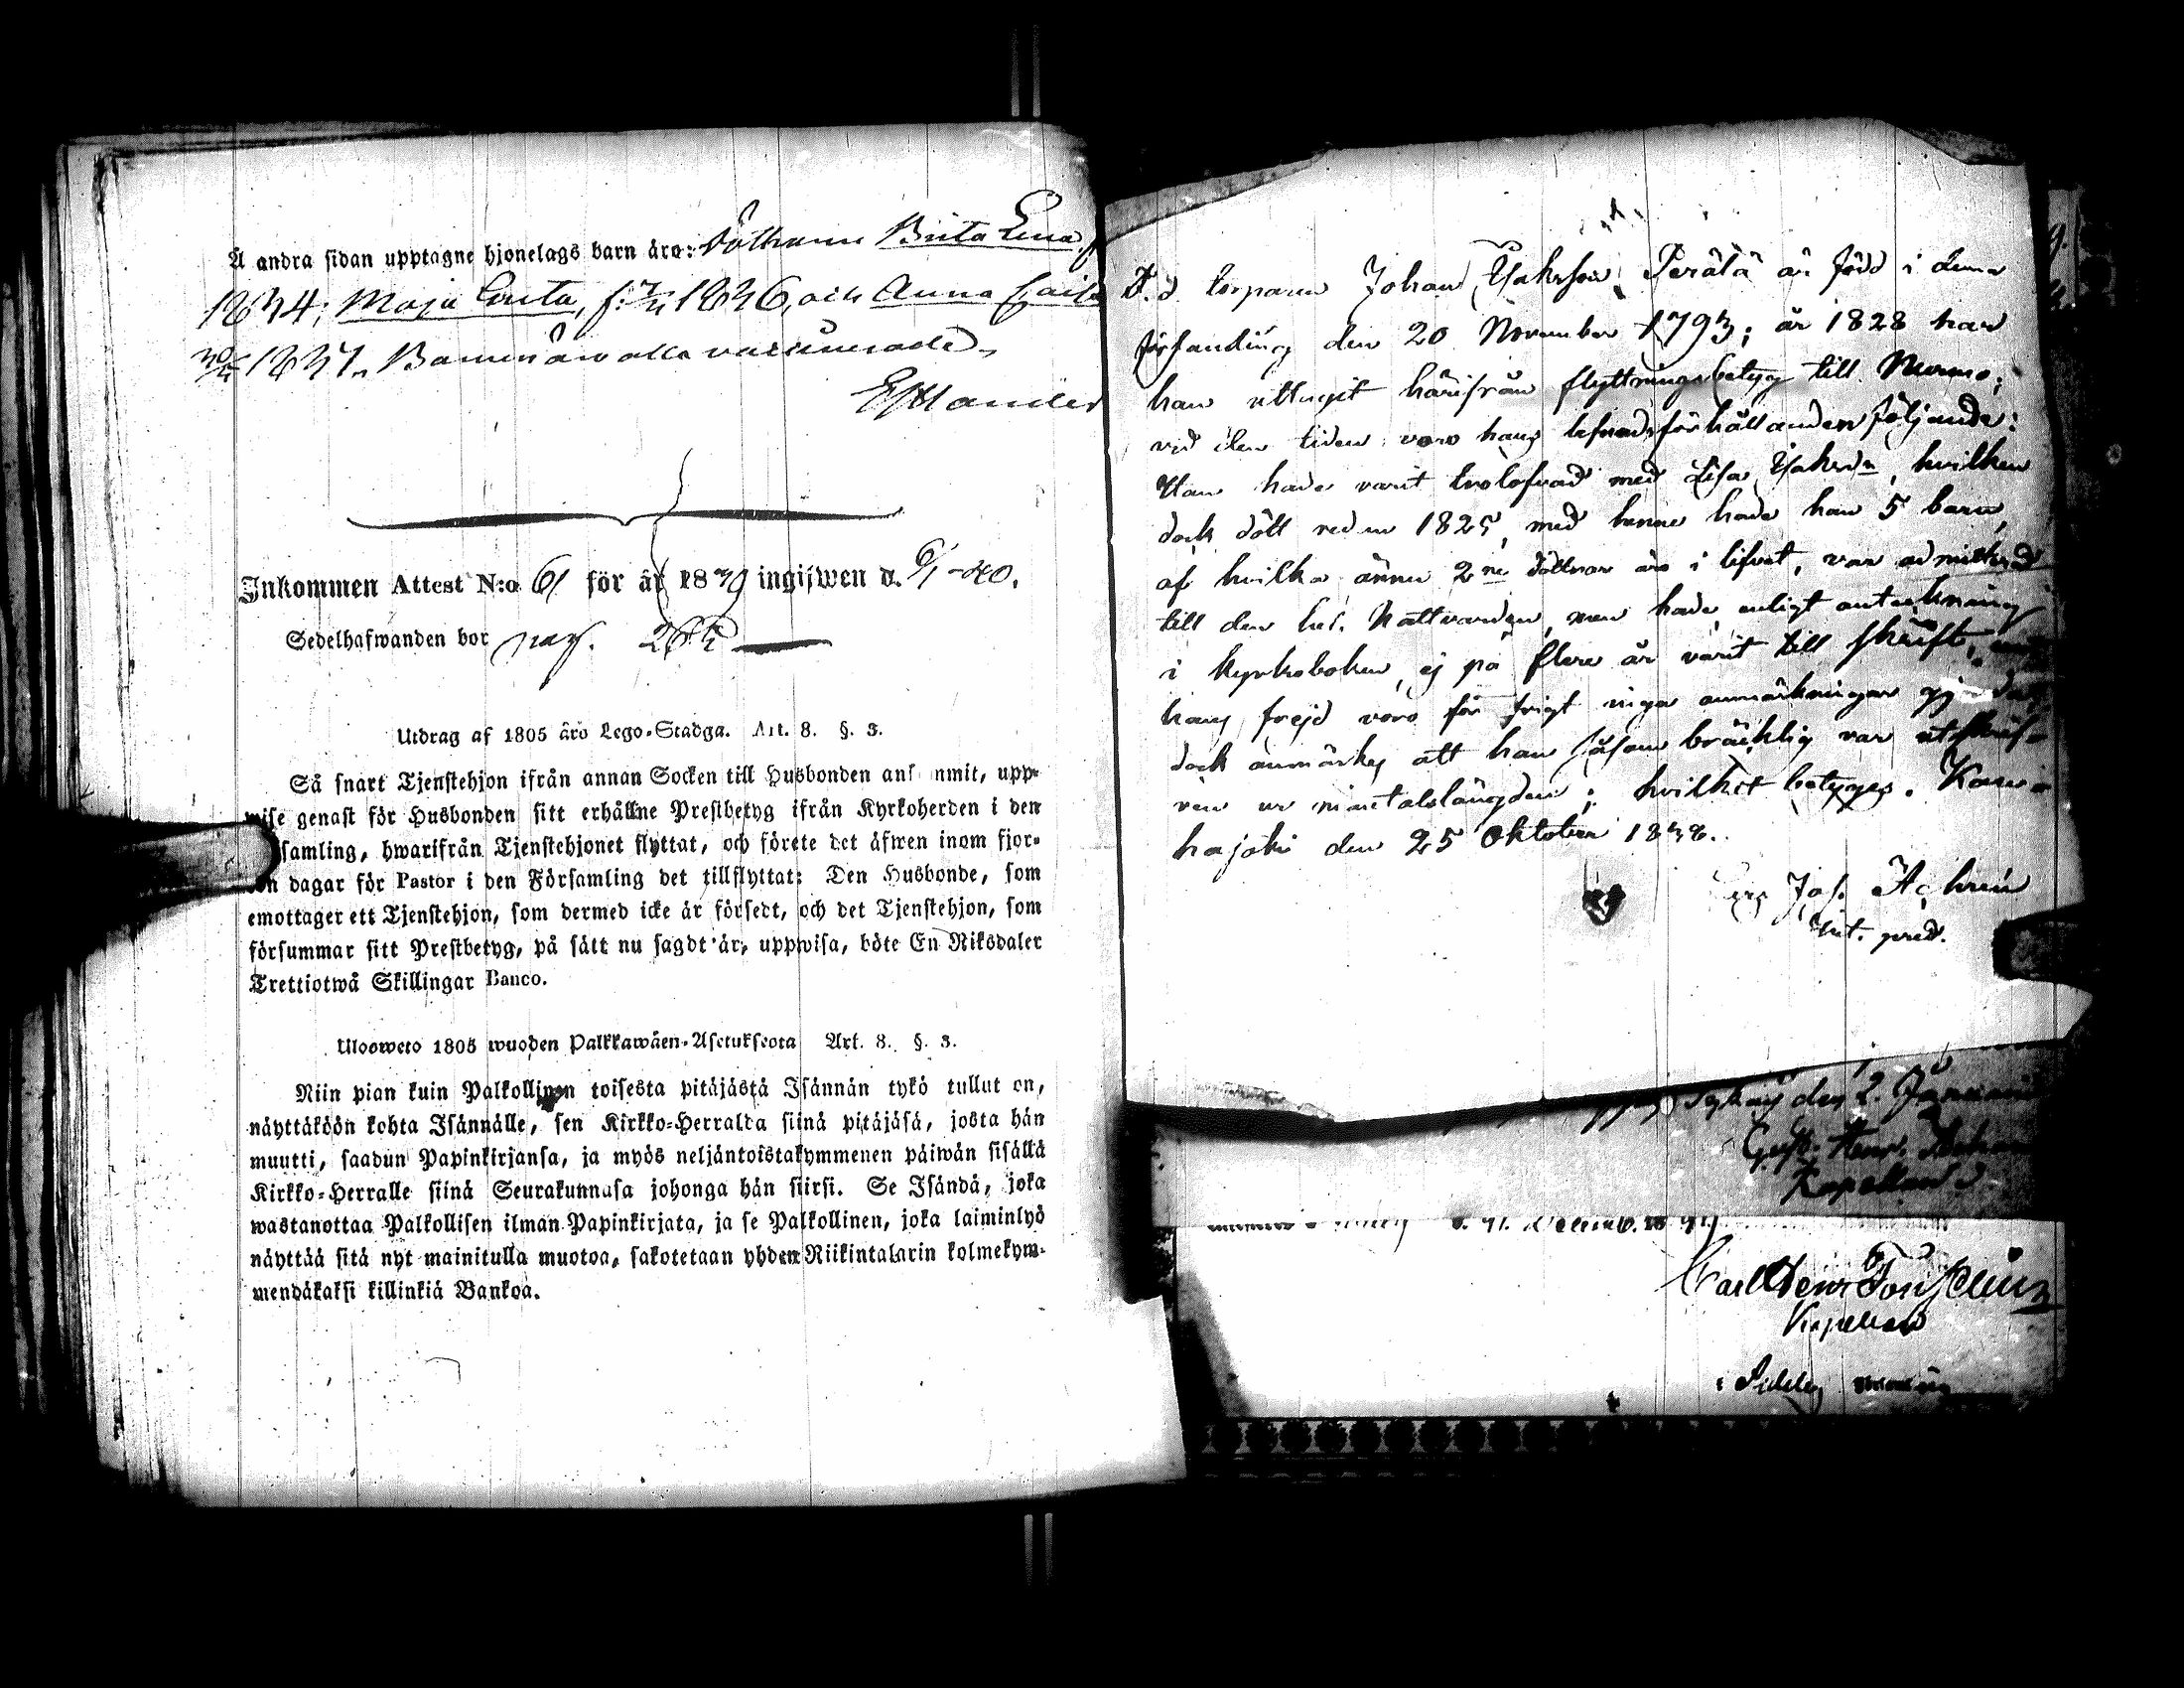 Å andra sidan upptagne hjonelags barn äro: Döttrarne Brita Lena, f.
1834; Maja Greta, f. 1836, och Anna Caisa
1837. Barnen äro alla vaccinerade.
Inkommen Attest N:o 61 för år 1839 ingifwen d. 6/1 -40.
Sedelhafwanden bor pag.
Utdrag af 1805 års Lego-Stadga. Art. 8. §. 3.
Så snart Tjenstehjon ifrån annan Socken till Husbonden ankommit, upp-
wise genast för Husbonden sitt erhållne Prestbetyg ifrån Kyrkoherden i den
samling, hwarifrån Tjenstehjonet flyttat, och förete det äfwen inom fjor-
ton dagar för Pastor i den Församling det tillflyttat: Den Husbonde, som
emottager ett Tjenstehjon, som dermed icke är försedt, och det Tjenstehjon, som
försummar sitt Prestbetyg, på sätt nu sagdt är, uppwisa, böte En Riksdaler
Trettiotwå Skillingar Banco.
Ulosweto 1805 wuoden Palkkawäen-Asetuksesta Art. 8. §. 3.
Niin pian kuin Palkollinen toisesta pitäjästä Isännän tykö tullut on,
näyttäköön kohta Isännälle, sen Kirkko-Herralda siinä pitäjäsä, josta hän
muutti, saadun Papinkirjansa, ja myös neljäntoistakymmenen päiwän sisällä
Kirkko-Herralle siinä Seurakunnasa johonga hän siirsi. Se Isändä, joka
wastanottaa Palkollisen ilman Papinkirjata, ja se Palkollinen, joka laiminlyö
näyttää sitä nyt mainitulla muotoa, sakotetaan yhden Riikintalarin kolmekym-
mendäkaksi killinkiä Bankoa.
F.d. torparen Johan Jakrson Perälä är född i denna
församling den 20 November 1793; år 1828 har
han uttagit härifrån flyttningsbetyg till Nurmo;
vid den tiden voro hans lefnadsförhållanden följande:
Han hade varit trolofvad med Lisa Jakrsdr, hvilken
dock dött redan 1825, med henne hade han 5 barn,
af hvilka ännu 2ne döttrar äro i lifvet, var admitterad
till den hel. Nattvarden, men hade enligt anteckning
i kyrkoboken, ej på flere år varit till skrift,
hans frejd voro för frigt inga anmärkningar gjorda,
dock anmärkes att han såsom bräcklig var utskrif-
ven ur mantalslängden; hvilket betygas. Kauw
hajoki den 25 Oktober 1838.
Jos.
pred.
den 2. Januarii
Gust. Henr.
Kapellan
Carl Henr
Kapellan